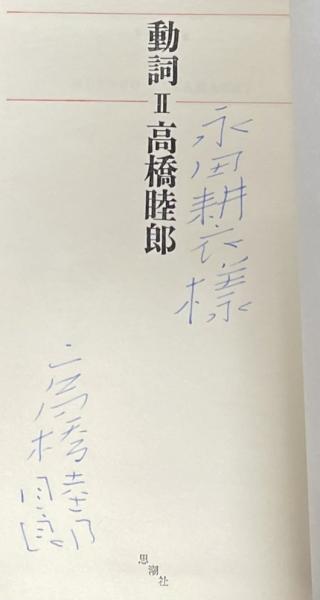 永田耕衣様
動詞Ⅱ高橋睦郎
高橋睦郎
思潮社